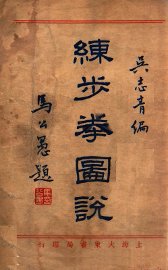 吳志青編
練步拳圖說
馬公愚題
上海大東書局印行